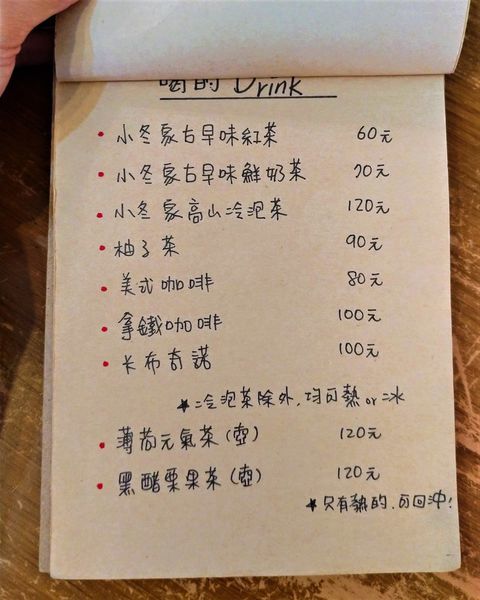 喝的 Drink
小冬家古早味紅茶 60元
小冬家古早味鮮奶茶 70元
小冬家高山冷泡茶 120元
柚子茶 90元
美式咖啡 80元
拿鐵咖啡 100元
卡布奇諾 100元
★冷泡茶除外,均可熱or冰
薄荷元氣茶(壺) 120元
黑醋栗果茶(壺) 120元
★只有熱的,可回沖!